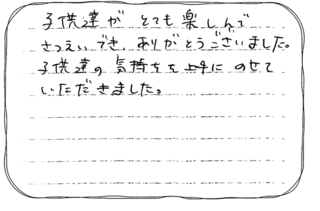 子供達が とても楽しんで
さつえいでき、ありがとうございました。
子供達の気持ちを上手に のせて
いただきました。